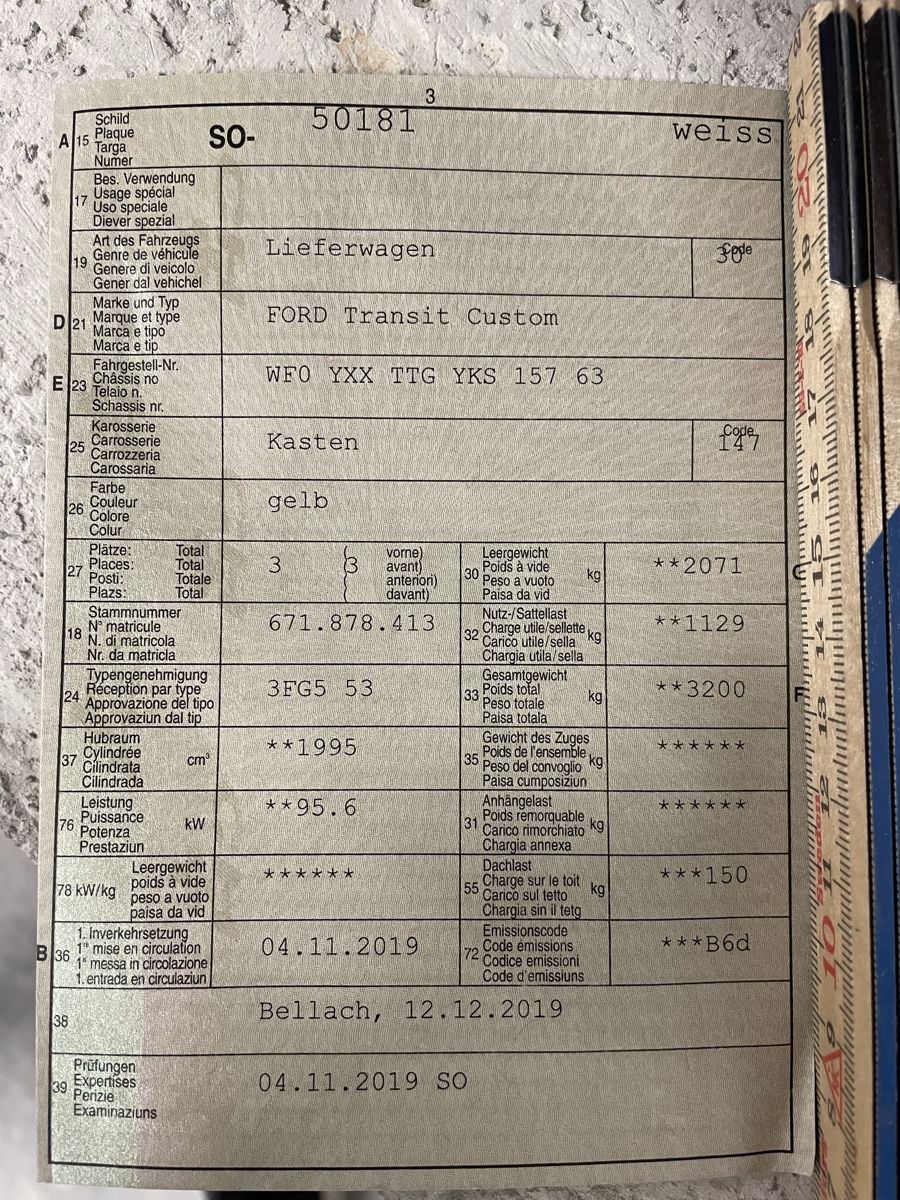 3
A 15 Schild
Plaque
Targa
Numer
SO- 50181 weiss
17 Bes. Verwendung
Usage spécial
Uso speciale
Diever spezial
19 Art des Fahrzeugs
Genre de véhicule
Genere di veicolo
Gener dal vehichel
Lieferwagen
Code
30
D 21 Marke und Typ
Marque et type
Marca e tipo
Marca e tip
FORD Transit Custom
E 23 Fahrgestell-Nr.
Châssis no
Telaio n.
Schassis nr.
WF0 YXX TTG YKS 157 63
25 Karosserie
Carrosserie
Carrozzeria
Carossaria
Kasten
Code
147
26 Farbe
Couleur
Colore
Colur
gelb
27 Plätze: Total
Places: Total
Posti: Totale
Plazs: Total
3 (3 vorne)
avant)
anteriori)
davant)
30 Leergewicht
Poids à vide
Peso a vuoto kg
Paisa da vid
**2071
G
18 Stammnummer
N° matricule
N. di matricola
Nr. da matricla
671.878.413
32 Nutz-/Sattellast
Charge utile/sellette kg
Carico utile/sella
Chargia utila/sella
**1129
24 Typengenehmigung
Réception par type
Approvazione del tipo
Approvaziun dal tip
3FG5 53
33 Gesamtgewicht
Poids total
Peso totale kg
Paisa totala
**3200
F
37 Hubraum
Cylindrée
Cilindrata cm³
Cilindrada
**1995
35 Gewicht des Zuges
Poids de l'ensemble
Peso del convoglio kg
Paisa cumposiziun
******
76 Leistung
Puissance
Potenza kW
Prestaziun
**95.6
31 Anhängelast
Poids remorquable
Carico rimorchiato kg
Chargia annexa
******
78 kW/kg Leergewicht
poids à vide
peso a vuoto
paisa da vid
******
55 Dachlast
Charge sur le toit
Carico sul tetto kg
Chargia sin il tetg
***150
B 36 1. Inverkehrsetzung
1re mise en circulation
1a messa in circolazione
1. entrada en circulaziun
04.11.2019
72 Emissionscode
Code émissions
Codice emissioni
Code d'emissiuns
***B6d
38 Bellach, 12.12.2019
39 Prüfungen
Expertises
Perizie
Examinaziuns
04.11.2019 SO
20
19
18
17
16
15
14
13
12
11
10
9
8
Sweden